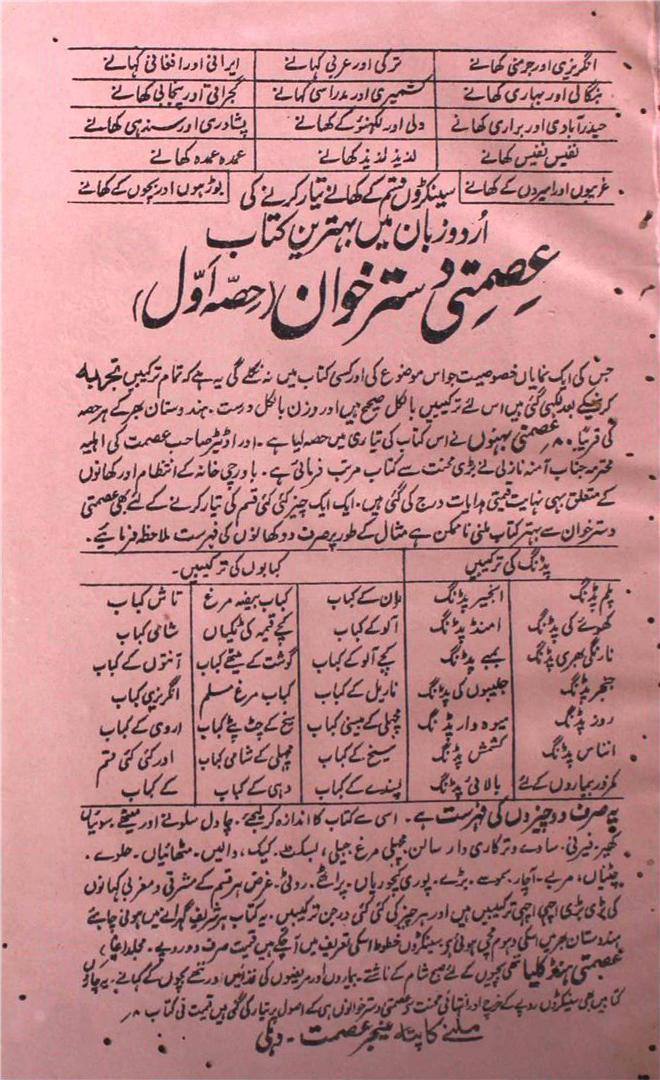 انگریزی اور جرمنی کھانے	ترکی اور عربی کھانے	ایرانی اور افغانی کھانے
بنگالی اور بہاری کھانے	کشمیری اور مدراسی کھانے	گجراتی اور پنجابی کھانے
حیدرآبادی اور براری کھانے	دلی اور لکھنؤ کے کھانے	پشاوری اور سندھی کھانے
نفیس نفیس کھانے	لذیذ لذیذ کھانے	عمدہ عمدہ کھانے
غریبوں اور امیروں کے کھانے	سینکڑوں قسم کے کھانے تیار کرنے کی	بوڑھوں اور بچوں کے کھانے
اُردو زبان میں بہترین کتاب
عصمتی دسترخوان (حصہ اوّل)
جس کی ایک نمایاں خصوصیت جو اس موضوع کی اور کسی کتاب میں نہ نکلے گی یہ ہے کہ تمام ترکیبیں تجربہ
کر چکنے کے بعد لکھی گئی ہیں اس لئے ترکیبیں بالکل صحیح ہیں اور وزن بالکل درست۔ ہندوستان بھر کے ہر حصہ
کی قریباً ۸۰ عصمتی بہنوں نے اس کتاب کی تیاری میں حصہ لیا ہے۔ اور اڈیٹر صاحب عصمت کی اہلیہ
محترمہ جناب آمنہ نازلی نے بڑی محنت سے کتاب مرتب فرمائی ہے۔ باورچی خانہ کے انتظام اور کھانوں
کے متعلق بھی نہایت قیمتی ہدایات درج کی گئی ہیں۔ ایک ایک چیز کئی کئی قسم کی تیار کرنے کے لئے بھی عصمتی
دسترخوان سے بہتر کتاب ملنی ناممکن ہے مثال کے طور پر صرف دو کھانوں کی فہرست ملاحظہ فرمائیے۔
پڈنگ کی ترکیبیں	کبابوں کی ترکیبیں۔
پلم پڈنگ	انجیر پڈنگ	ران کے کباب	کباب بیضہ مرغ	تاش کباب
کھوئے کی پڈنگ	امنڈ پڈنگ	آلو کے کباب	کچے قیمہ کی ٹکیاں	شامی کباب
نارنگی بھری پڈنگ	بمبے پڈنگ	کچے آلو کے کباب	گوشت کے میٹھے کباب	آنتوں کے کباب
جنجر پڈنگ	جلیبیوں کی پڈنگ	ناریل کے کباب	کباب مرغ مسلم	انگریزی کباب
روز پڈنگ	میوہ دار پڈنگ	مچھلی کے بیسنی کباب	سیخ کے چٹ پٹے کباب	اروی کے کباب
انناس پڈنگ	کشش پڈنگ	سیخ کے کباب	مچھلی کے شامی کباب	اور کئی کئی قسم
کمزور بیماروں کے لئے	بالائی پڈنگ	پسندے کے کباب	دہی کے کباب	کے کباب
یہ صرف دو چیزوں کی فہرست ہے۔ اسی سے کتاب کا اندازہ کر لیجئے۔ چاول سلونے اور میٹھے۔ سویاں
کھیر۔ فیرنی۔ سادے و ترکاری دار سالن۔ مچھلی مرغ۔ جیلی، بسکٹ۔ کیک، دالیں۔ مٹھائیاں۔ حلوے۔
چٹنیاں، مربے۔ آچار۔ سموسے۔ بڑے۔ پوری کچوریاں۔ پراٹھے۔ روٹی۔ غرض ہر قسم کے مشرقی و مغربی کھانوں
کی بڑی بڑی اچھی اچھی ترکیبیں ہیں اور ہر چیز کی کئی کئی درجن ترکیبیں۔ یہ کتاب ہر شریف گھرانے میں ہونی چاہئے
ہندوستان بھر میں اسکی دہوم مچی ہوئی ہے سینکڑوں خطوط اسکی تعریف میں آ چکے ہیں قیمت صرف دو روپے۔ مجلد
عصمتی ہنڈکلیا ننھی بچیوں کے لئے صبح شام کے ناشتے۔ بیماروں اور مریضوں کی غذائیں اور ننھے بچوں کے کھانے۔ یہ چاروں
کتابیں بھی سینکڑوں روپے کے خرچ اور انتہائی محنت سے عصمتی دسترخوانوں ہی کے اصول پر تیار کی گئی ہیں قیمت فی کتاب ۸؍
ملنے کا پتہ منیجر عصمت۔ دہلی